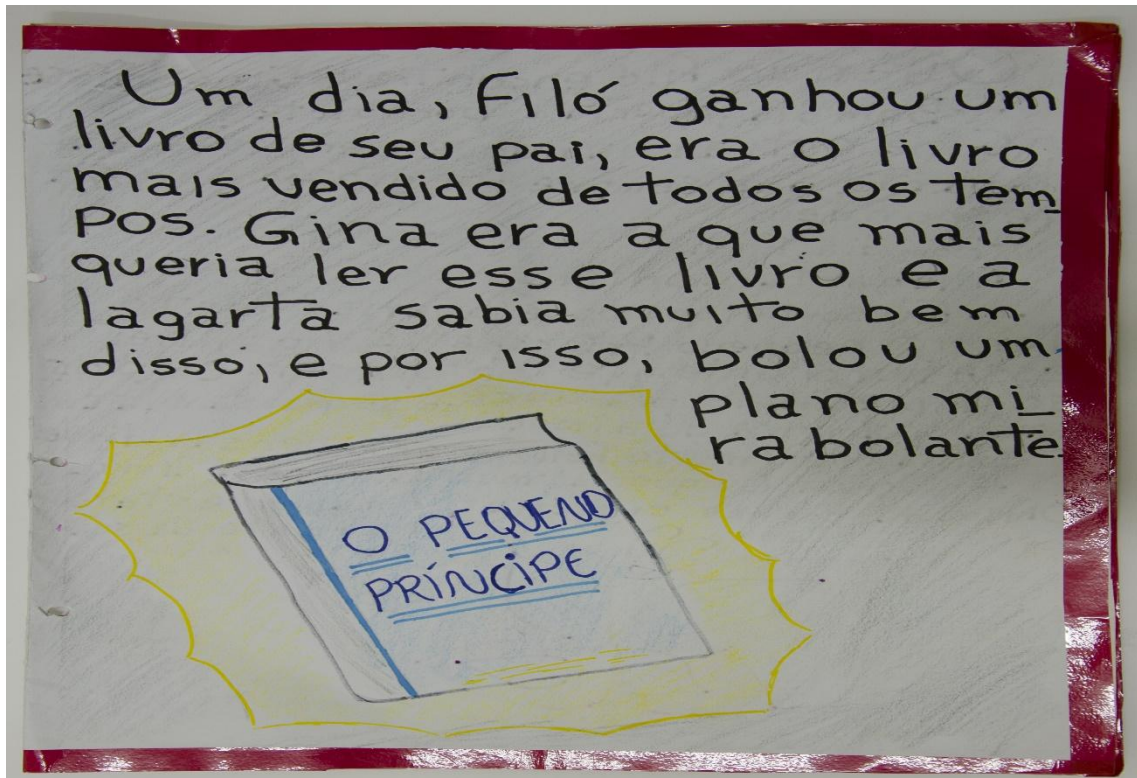 Um dia, Filó ganhou um
livro de seu pai, era o livro
mais vendido de todos os tem
pos. Gina era a que mais
queria ler esse livro e a
lagarta sabia muito bem
disso, e por isso, bolou um
plano mi
rabolante.
O PEQUENO
PRÍNCIPE